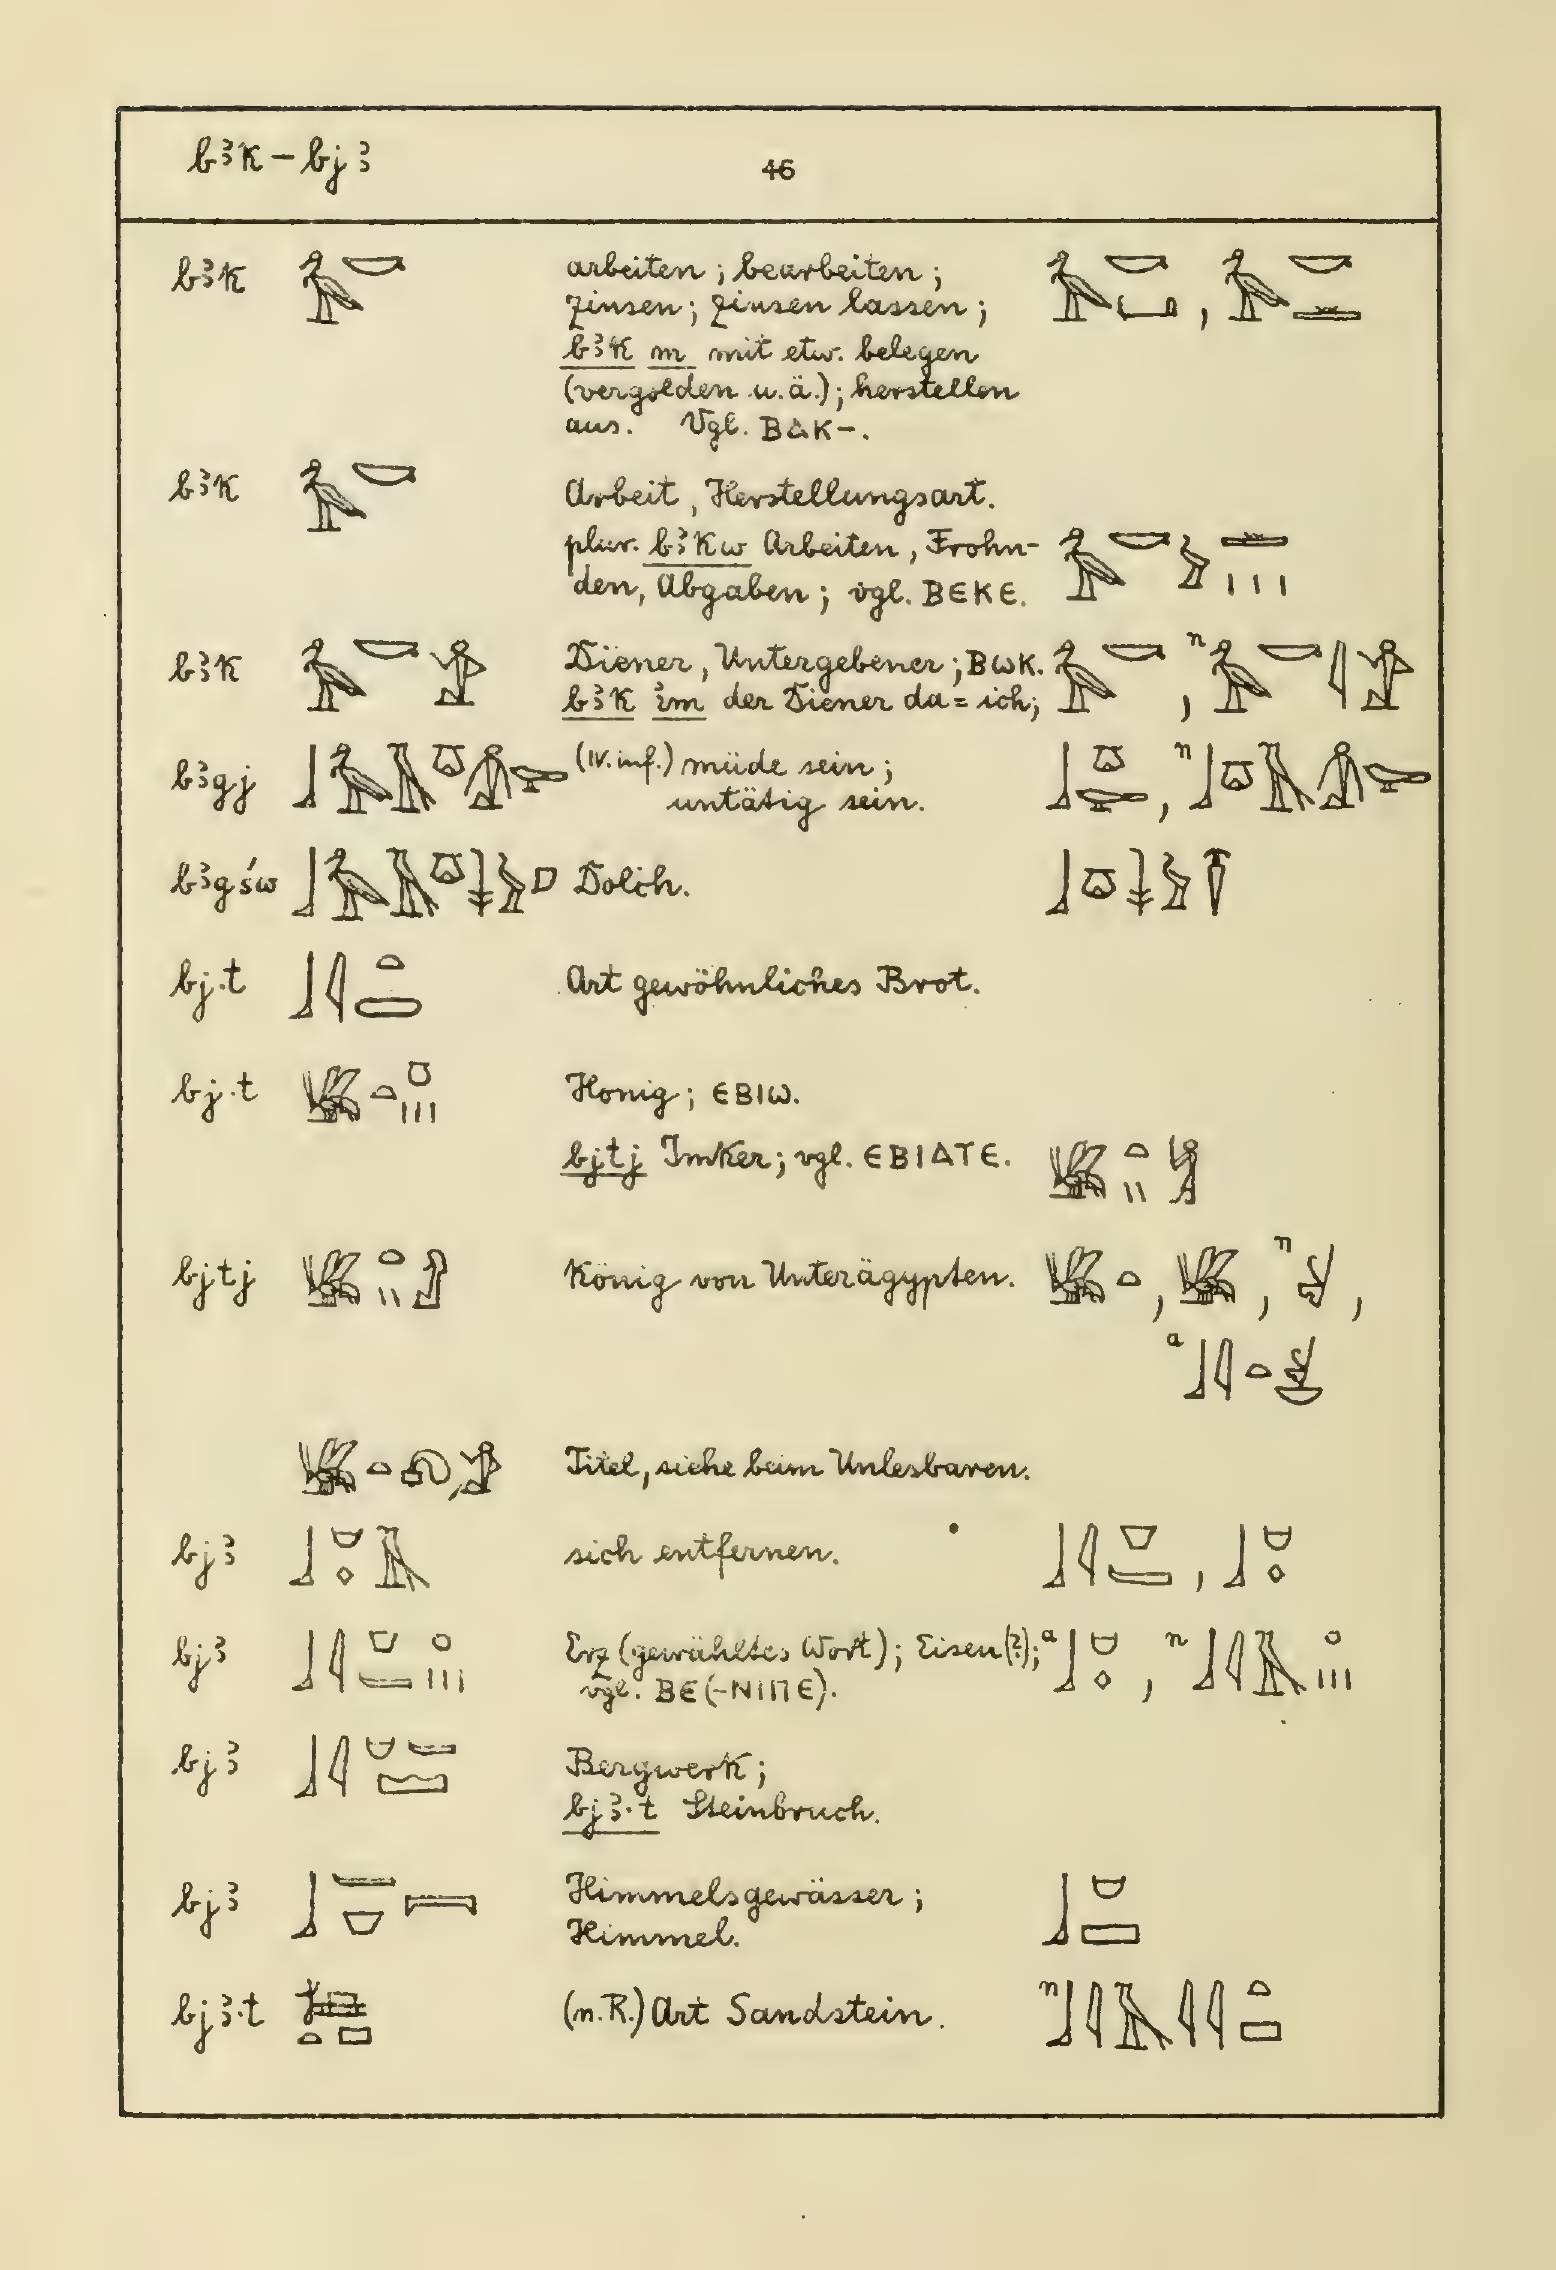 bꜣk – bjꜣ
46
bꜣk arbeiten; bearbeiten;
zinsen; zinsen lassen;
bꜣk m mit etw. belegen
(vergolden u.ä.); herstellen
aus. Vgl. ⲃⲁⲕ-.
bꜣk Arbeit, Herstellungsart.
plur. bꜣkw Arbeiten, Frohn-
den, Abgaben; vgl. ⲃⲉⲕⲉ.
bꜣk Diener, Untergebener; ⲃⲱⲕ. n
bꜣk im der Diener da = ich;
bꜣgj (IV. inf.) müde sein; n
untätig sein.
bꜣgśw Dolch.
bj.t Art gewöhnliches Brot.
bj.t Honig; ⲉⲃⲓⲱ.
bjtj Imker; vgl. ⲉⲃⲓⲁⲧⲉ.
bjtj König von Unterägypten. n
a
Titel, siehe beim Unlesbaren.
bjꜣ sich entfernen.
bjꜣ Erz (gewähltes Wort); Eisen(?); a n
vgl. ⲃⲉ(-ⲛⲓⲡⲉ).
bjꜣ Bergwerk;
bjꜣ.t Steinbruch.
bjꜣ Himmelsgewässer;
Himmel.
bjꜣ.t (n.R.) Art Sandstein. n